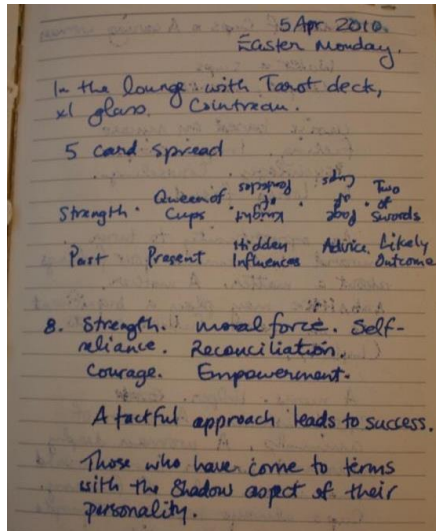 5 Apr. 2010.
Easter Monday.
In the lounge with Tarot deck,
x1 glass Cointreau.
5 card spread
Strength · Queen of Cups · Knight of Pentacles · Page of Cups · Two of Swords
Past Present Hidden Influences Advice. Likely Outcome
8. Strength. Moral force. Self-
reliance. Reconciliation.
Courage. Empowerment.
A tactful approach leads to success.
Those who have come to terms
with the Shadow aspect of their
personality.